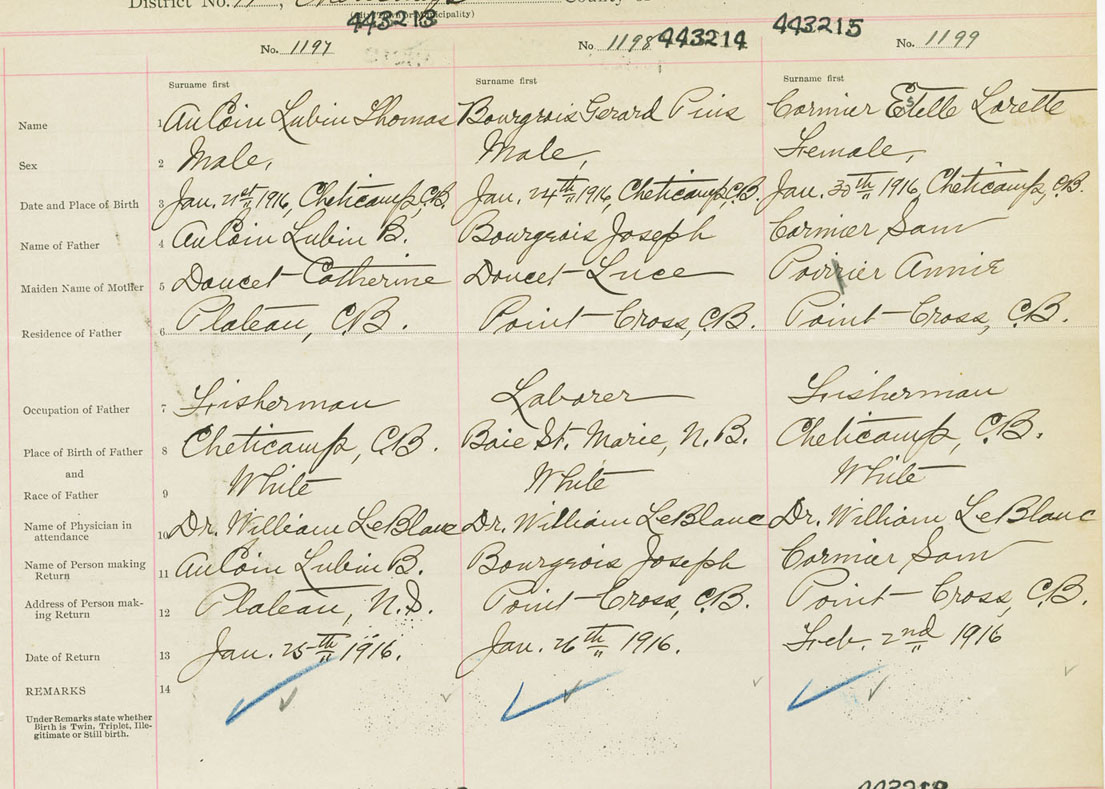 District No. 11,
443213
443214
443215
No. 1197
No 1198
No. 1199
Surname first
Surname first
Surname first
Name 1 AuCoin Lubin Thomas Bourgeois Gerard Pius Cormier Estelle Lorette
Sex 2 Male, Male, Female,
Date and Place of Birth 3 Jan. 21st 1916, Cheticamp, C.B. Jan. 24th 1916, Cheticamp, C.B. Jan. 30th 1916, Cheticamp, C.B.
Name of Father 4 AuCoin Lubin B. Bourgeois Joseph Cormier Sam
Maiden Name of Mother 5 Doucet Catherine Doucet Luce Poirrier Annie
Residence of Father 6 Plateau, C.B. Point-Cross, C.B. Point-Cross, C.B.
Occupation of Father 7 Fisherman Laborer Fisherman
Place of Birth of Father 8 Cheticamp, C.B. Baie St. Marie, N.B. Cheticamp, C.B.
and
Race of Father 9 White White White
Name of Physician in
attendance 10 Dr. William LeBlanc Dr. William LeBlanc Dr. William LeBlanc
Name of Person making
Return 11 AuCoin Lubin B. Bourgeois Joseph Cormier Sam
Address of Person mak-
ing Return 12 Plateau, N.S. Point-Cross, C.B. Point-Cross, C.B.
Date of Return 13 Jan. 25th 1916. Jan. 26th 1916. Feb. 2nd 1916
REMARKS 14
Under Remarks state whether
Birth is Twin, Triplet, Ille-
gitimate or Still birth.